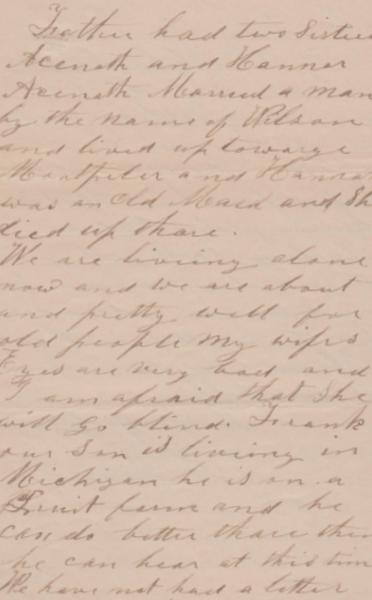 Father had two Sister
Acenath and Hannar
Acenath Married a man
by the name of Wilson
and lived up towarge
Montpelier and Hannar
was an Old Maed and She
died up thare.
We are liveing alone
now and we are about
and pretty well for
old people My wifes
Eyes are very bad and
I am afraid that She
will go blind. Frank
our Son is liveing in
Michigan he is on a
Fruit farm and he
can do better thare then
he can hear at this tim
We have not had a letter